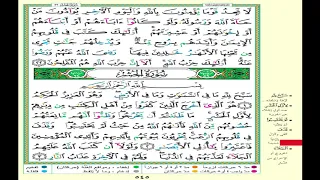 لَّا تَجِدُ قَوْمًا يُؤْمِنُونَ بِٱللَّهِ وَٱلْيَوْمِ ٱلْءَاخِرِ يُوَآدُّونَ مَنْ
حَآدَّ ٱللَّهَ وَرَسُولَهُۥ وَلَوْ كَانُوٓا۟ ءَابَآءَهُمْ أَوْ أَبْنَآءَهُمْ
أَوْ إِخْوَٰنَهُمْ أَوْ عَشِيرَتَهُمْ أُو۟لَٰٓئِكَ كَتَبَ فِى قُلُوبِهِمُ
ٱلْإِيمَٰنَ وَأَيَّدَهُم بِرُوحٍ مِّنْهُ وَيُدْخِلُهُمْ جَنَّٰتٍ تَجْرِى
مِن تَحْتِهَا ٱلْأَنْهَٰرُ خَٰلِدِينَ فِيهَا رَضِىَ ٱللَّهُ عَنْهُمْ وَرَضُوا۟
عَنْهُ أُو۟لَٰٓئِكَ حِزْبُ ٱللَّهِ أَلَآ إِنَّ حِزْبَ ٱللَّهِ هُمُ ٱلْمُفْلِحُونَ
سُورَةُ الحَشْرِ
بِسْمِ ٱللَّهِ ٱلرَّحْمَٰنِ ٱلرَّحِيمِ
سَبَّحَ لِلَّهِ مَا فِى ٱلسَّمَٰوَٰتِ وَمَا فِى ٱلْأَرْضِ وَهُوَ ٱلْعَزِيزُ ٱلْحَكِيمُ
هُوَ ٱلَّذِىٓ أَخْرَجَ ٱلَّذِينَ كَفَرُوا۟ مِنْ أَهْلِ ٱلْكِتَٰبِ مِن دِيَٰرِهِمْ
لِأَوَّلِ ٱلْحَشْرِ مَا ظَنَنتُمْ أَن يَخْرُجُوا۟ وَظَنُّوٓا۟ أَنَّهُم مَّانِعَتُهُمْ
حُصُونُهُم مِّنَ ٱللَّهِ فَأَتَىٰهُمُ ٱللَّهُ مِنْ حَيْثُ لَمْ يَحْتَسِبُوا۟ وَقَذَفَ
فِى قُلُوبِهِمُ ٱلرُّعْبَ يُخْرِبُونَ بُيُوتَهُم بِأَيْدِيهِمْ وَأَيْدِى ٱلْمُؤْمِنِينَ
فَٱعْتَبِرُوا۟ يَٰٓأُو۟لِى ٱلْأَبْصَٰرِ وَلَوْلَآ أَن كَتَبَ ٱللَّهُ عَلَيْهِمُ
ٱلْجَلَآءَ لَعَذَّبَهُمْ فِى ٱلدُّنْيَا وَلَهُمْ فِى ٱلْءَاخِرَةِ عَذَابُ ٱلنَّارِ